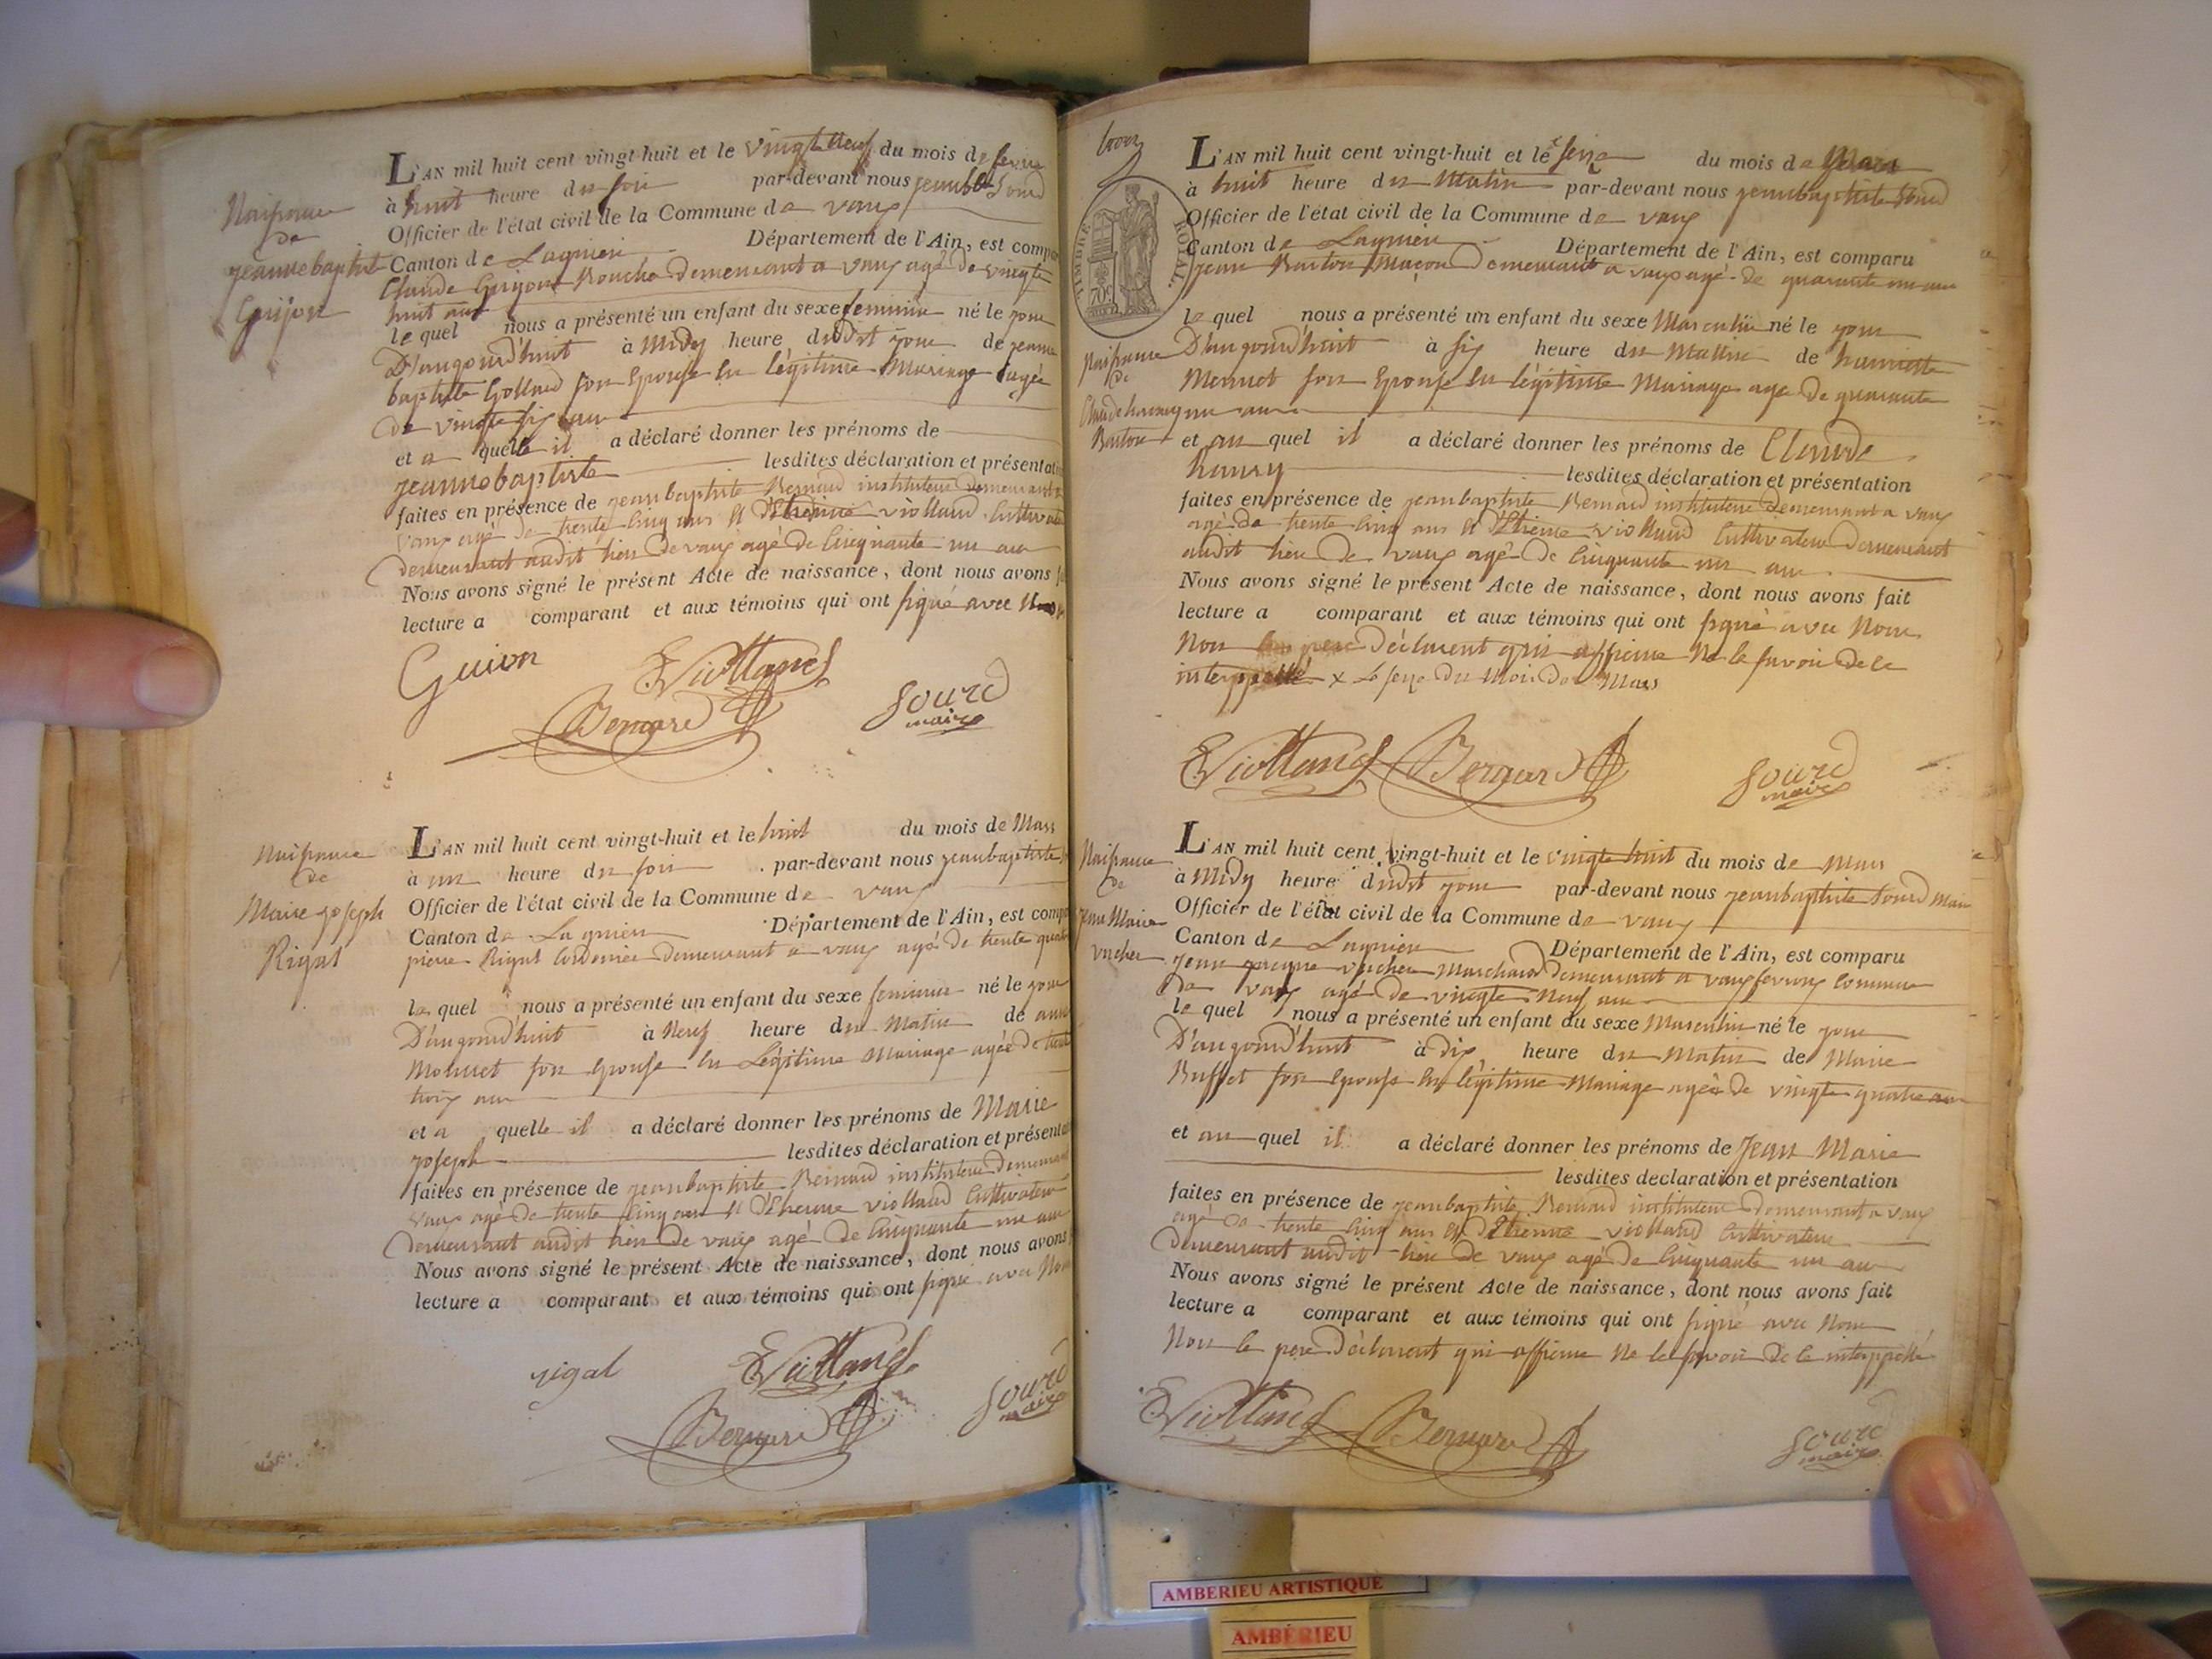 Naissance
de
jeanne baptiste
Guijon
L'AN mil huit cent vingt-huit et le vingt neuf du mois de fevrier
à huit heure du soir par-devant nous jean bte Sourd
Officier de l'état civil de la Commune de vaux
Canton de Lagnieu Département de l'Ain, est compa
Claude Guijon demeurant a vaux agé de vingt
huit ans
le quel nous a présenté un enfant du sexe feminin né le jour
D'aujourd'huit à Midy heure dudit jour de jeanne
baptiste son Epouse en légitime Mariage agée
de vingt six ans
et a quelle il a déclaré donner les prénoms de
jeanne baptiste lesdites déclaration et présentation
faites en présence de jean baptiste Bernard instituteur demeurant a
vaux agé de trente cinq ans et Ethienne violland Cultivateur
demeurant audit lieu de vaux agé de Cinquante un an
Nous avons signé le présent Acte de naissance, dont nous avons
lecture a comparant et aux témoins qui ont signé avec Nous
Guion EViolland
Bernard Sourd
maire
Naissance
de
Marie joseph
Rigal
L'AN mil huit cent vingt-huit et le huit du mois de Mars
à un heure du soir par-devant nous jean baptiste
Officier de l'état civil de la Commune de vaux
Canton de Lagnieu Département de l'Ain, est compa
pierre Rigal Cordonnier demeurant a vaux agé de trente quatre
le quel nous a présenté un enfant du sexe feminin né le jour
D'aujourd'huit à Neuf heure du Matin de anne
Monnet son Epouse en Légitime Mariage agée de trente
trois ans
et a quelle il a déclaré donner les prénoms de Marie
joseph lesdites déclaration et présenta
faites en présence de jean baptiste Bernard instituteur demeurant
vaux agé de trente cinq ans et Ethienne viollard Cultivateur
demeurant audit lieu de vaux agé de Cinquante un an
Nous avons signé le présent Acte de naissance, dont nous avons
lecture a comparant et aux témoins qui ont signé avec Nous
rigal EViolland
Bernard Sourd
maire
TIMBRE ROYAL.
70c
Naissance
de
Claude hanry
Barton
L'AN mil huit cent vingt-huit et le x seize du mois de Mars
à huit heure du Matin par-devant nous jean baptiste Sourd
Officier de l'état civil de la Commune de vaux
Canton de Lagnieu Département de l'Ain, est comparu
jean Barton Maçon demeurant a vaux agé de quarante un ans
le quel nous a présenté un enfant du sexe Masculin né le jour
D'aujourd'huit à six heure du Mattin de hanriette
Monnet son Epouse en légitime Mariage agé de quarante
un ans
et au quel il a déclaré donner les prénoms de Claude
hanry lesdites déclaration et présentation
faites en présence de jean baptiste Bernard instituteur demeurant a vaux
agé de trente cinq ans et Ethienne viollard Cultivateur demeurant
audit lieu de vaux agé de Cinquante un an
Nous avons signé le présent Acte de naissance, dont nous avons fait
lecture a comparant et aux témoins qui ont signé avec Nous
Non le pere déclarent qui affirme Ne le savoir de ce
interppellé x Le seize du Mois de Mars
EViolland Bernard Sourd
maire
Naissance
de
jean Marie
vucher
L'AN mil huit cent vingt-huit et le vingt huit du mois de Mars
à Midy heure dudit jour par-devant nous jean baptiste Sourd Maire
Officier de l'état civil de la Commune de vaux
Canton de Lagnieu Département de l'Ain, est comparu
jean vucher Marchand demeurant a vaux fevroux Commune
de vaux agé de vingt Neuf ans
le quel nous a présenté un enfant du sexe Masculin né le jour
D'aujourd'huit à dix heure du Matin de Marie
Buffet son Epouse en légitime Mariage agée de vingt quatre ans
et au quel il a déclaré donner les prénoms de Jean Marie
lesdites declaration et présentation
faites en présence de jean baptiste Bernard instituteur demeurant a vaux
agé de trente cinq ans et Ethienne viollard Cultivateur
demeurant audit lieu de vaux agé de Cinquante un an
Nous avons signé le présent Acte de naissance, dont nous avons fait
lecture a comparant et aux témoins qui ont signé avec Nous
Non le pere déclarent qui affirme Ne le savoir de ce interppellé
EViolland Bernard Sourd
maire
AMBERIEU ARTISTIQUE
AMBÉRIEU